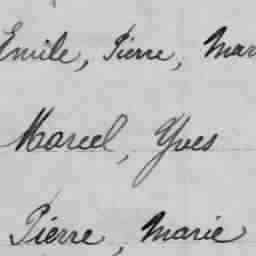 Emile, Pierre, Mar
Marcel, Yves
Pierre, Marie